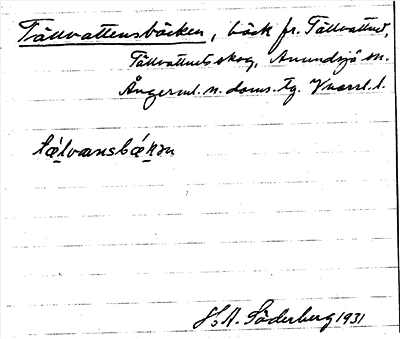 Tällvattensbäcken, bäck fr. Tällvattnet,
Tällvattnets skog, Anundsjö sn.
Ångerml. n. doms. tg. Vnorrl. l.
tä́lvansbä́kən
H.A. Söderberg 1931